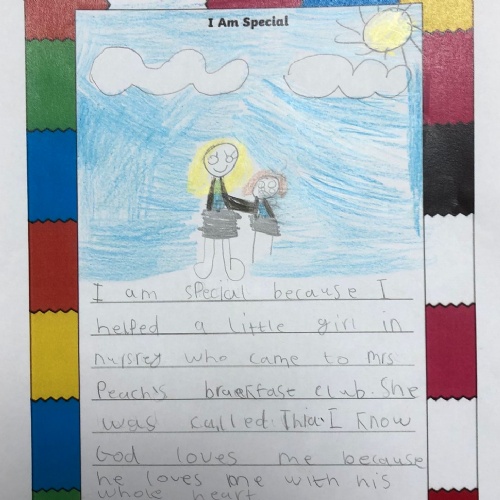 I Am Special
I am special because I
helped a little girl in
nursrey who came to mrs
Peachs breakfast club. She
was called. Thia I know
God loves me because
he loves me with his
whole heart